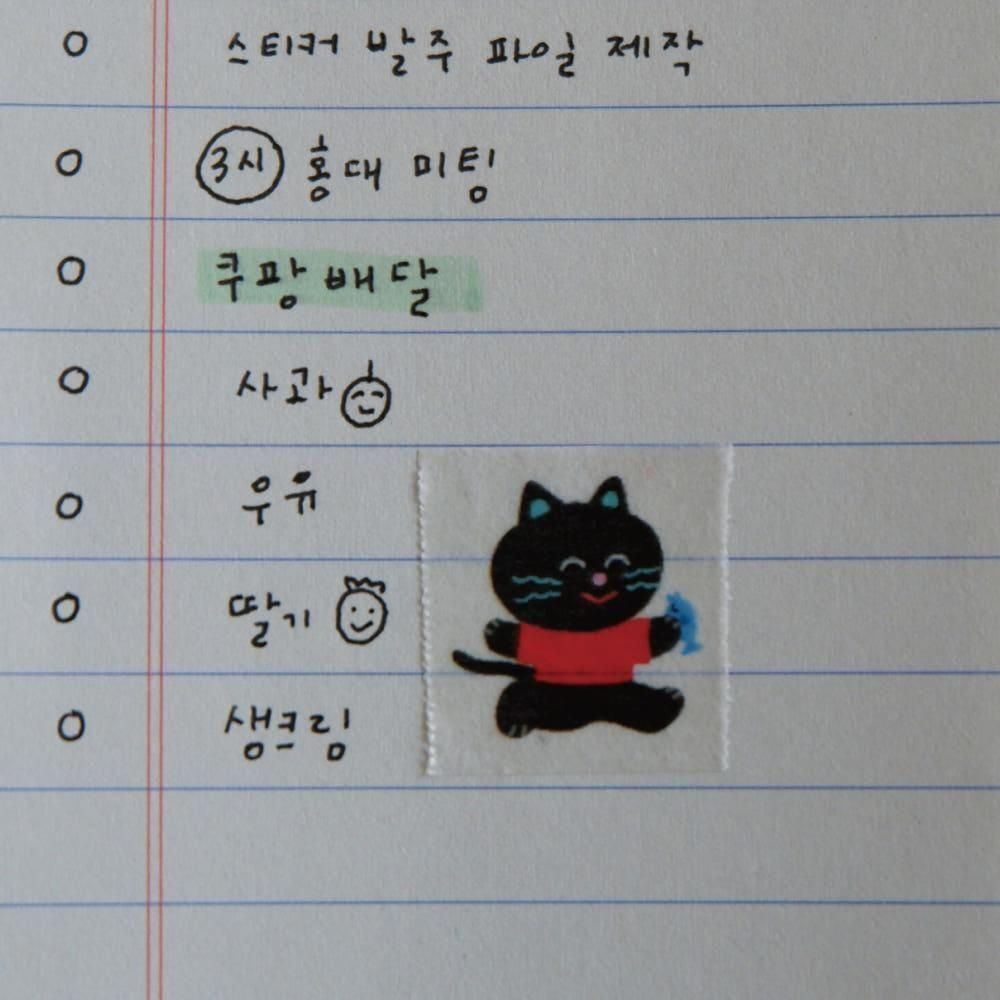 스티커 발주 파일 제작
3시 홍대 미팅
쿠팡 배달
사과
우유
딸기
생크림